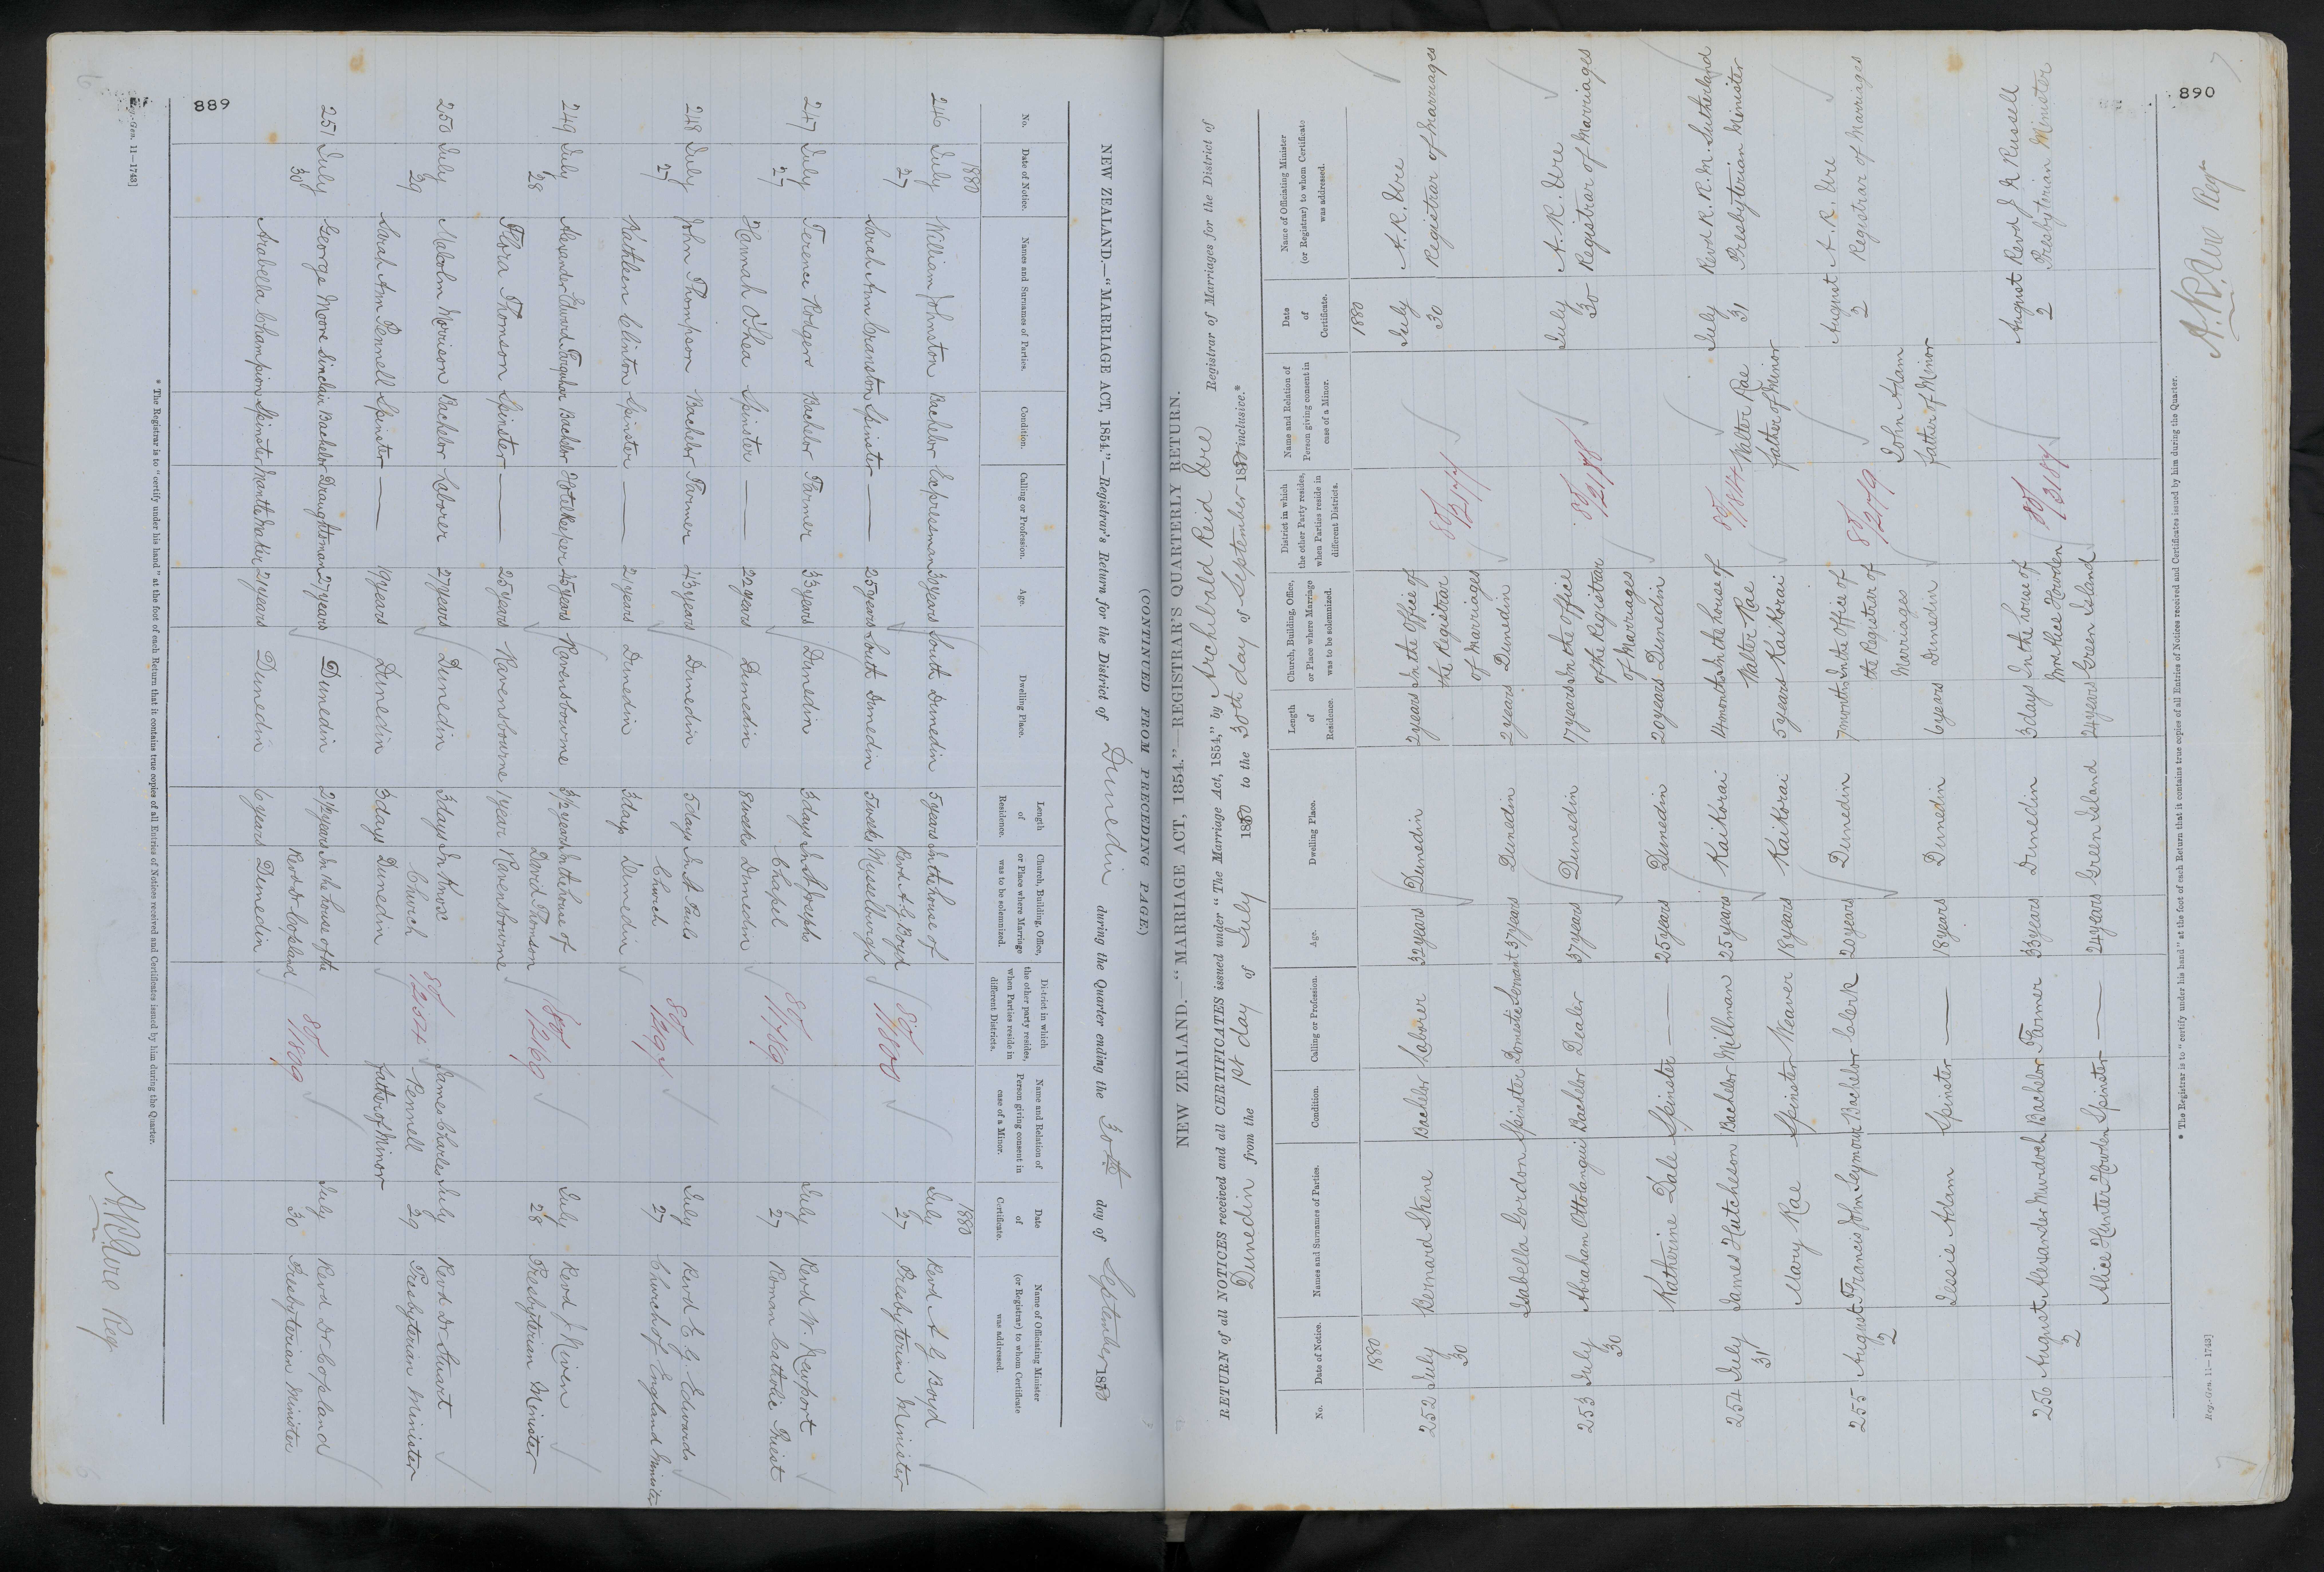 889
(CONTINUED FROM PRECEDING PAGE.)
NEW ZEALAND.—"MARRIAGE ACT, 1854."—Registrar's Return for the District of Dunedin during the Quarter ending the 30th day of September 1880
No. Date of Notice. Names and Surnames of Parties. Condition. Calling or Profession. Age. Dwelling Place. Length of Residence. Church, Building, Office, or Place where Marriage was to be solemnized. District in which the other party resides, when Parties reside in different Districts. Name and Relation of Person giving consent in case of a Minor. Date of Certificate. Name of Officiating Minister (or Registrar) to whom Certificate was addressed.
1880 1880
246 July William Johnston Bachelor Expressman 30 years South Dunedin 5 years In the house of July Revd A. G. Boyd
27 Revd A. G. Boyd 27 Presbyterian Minister
Sarah Ann Cranston Spinster — 25 years South Dunedin 5 weeks Musselburgh
247 July Terence Rodgers Bachelor Farmer 33 years Dunedin 3 days In St Josephs July Revd W. Newport
27 Chapel 80/1789 27 Roman Catholic Priest
Hannah O'Shea Spinster — 22 years Dunedin 8 weeks Dunedin
248 July John Thompson Bachelor Farmer 43 years Dunedin 5 days In St Pauls July Revd E. G. Edwards
27 Church 27 Church of England Minister
Kathleen Clinton Spinster — 21 years Dunedin 3 days Dunedin
249 July Alexander Edward Farquhar Bachelor Hotelkeeper 45 years Ravensbourne 3½ years In the house of July Revd J. Niven
28 David Thomson 28 Presbyterian Minister
Flora Thomson Spinster — 25 years Ravensbourne 1 year Ravensbourne
250 July Malcolm Morison Bachelor Laborer 27 years Dunedin 3 days In Knox James Charles July Revd Dr Stuart
29 Church Pennell 29 Presbyterian Minister
Sarah Ann Pennell Spinster — 19 years Dunedin 3 days Dunedin father of Minor
251 July George Moore Sinclair Bachelor Draughtsman 27 years Dunedin 2½ years In the house of the July Revd Dr Copland
30 Revd Dr Copland 80/1809 30 Presbyterian Minister
Arabella Champion Spinster Mantle Maker 21 years Dunedin 6 years Dunedin
* The Registrar is to "certify under his hand" at the foot of each Return that it contains true copies of all Entries of Notices received and Certificates issued by him during the Quarter.
Reg.-Gen. 11—1743]
A. R. Ure Reg
890
NEW ZEALAND.—"MARRIAGE ACT, 1854."—REGISTRAR'S QUARTERLY RETURN.
RETURN of all NOTICES received and all CERTIFICATES issued under "The Marriage Act, 1854," by Archibald Reid Ure Registrar of Marriages for the District of
Dunedin from the 1st day of July 1880 to the 30th day of September 1880 inclusive.*
No. Date of Notice. Names and Surnames of Parties. Condition. Calling or Profession. Age. Dwelling Place. Length of Residence. Church, Building, Office, or Place where Marriage was to be solemnized. District in which the other Party resides, when Parties reside in different Districts. Name and Relation of Person giving consent in case of a Minor. Date of Certificate. Name of Officiating Minister (or Registrar) to whom Certificate was addressed.
1880 1880
252 July Bernard Skene Bachelor Laborer 32 years Dunedin 2 years In the Office of July A. R. Ure
30 the Registrar 80/2177 30 Registrar of Marriages
of Marriages
Isabella Gordon Spinster Domestic Servant 37 years Dunedin 2 years Dunedin
253 July Abraham Ottolangui Bachelor Dealer 37 years Dunedin 17 years In the Office July A. R. Ure
30 of the Registrar 80/2178 30 Registrar of Marriages
of Marriages
Katherine Dale Spinster — 25 years Dunedin 20 years Dunedin
254 July James Hutcheson Bachelor Millman 25 years Kaikorai 4 months In the house of July Revd R. R. M. Sutherland
31 Walter Rae Walter Rae 31 Presbyterian Minister
Mary Rae Spinster Weaver 18 years Kaikorai 5 years Kaikorai father of Minor
255 August Francis John Seymour Bachelor Clerk 20 years Dunedin 7 months In the Office of August A. R. Ure
2 the Registrar of 80/2179 2 Registrar of Marriages
Marriages John Adam
Jessie Adam Spinster — 18 years Dunedin 6 years Dunedin father of Minor
256 August Alexander Murdoch Bachelor Farmer 33 years Dunedin 3 days In the house of August Revd J. R. Russell
2 Mrs Alice Howden 2 Presbyterian Minister
Alice Hunter Howden Spinster — 24 years Green Island 24 years Green Island
* The Registrar is to "certify under his hand" at the foot of each Return that it contains true copies of all Entries of Notices received and Certificates issued by him during the Quarter.
Reg.-Gen. 11—1743]
A. R. Ure Regr